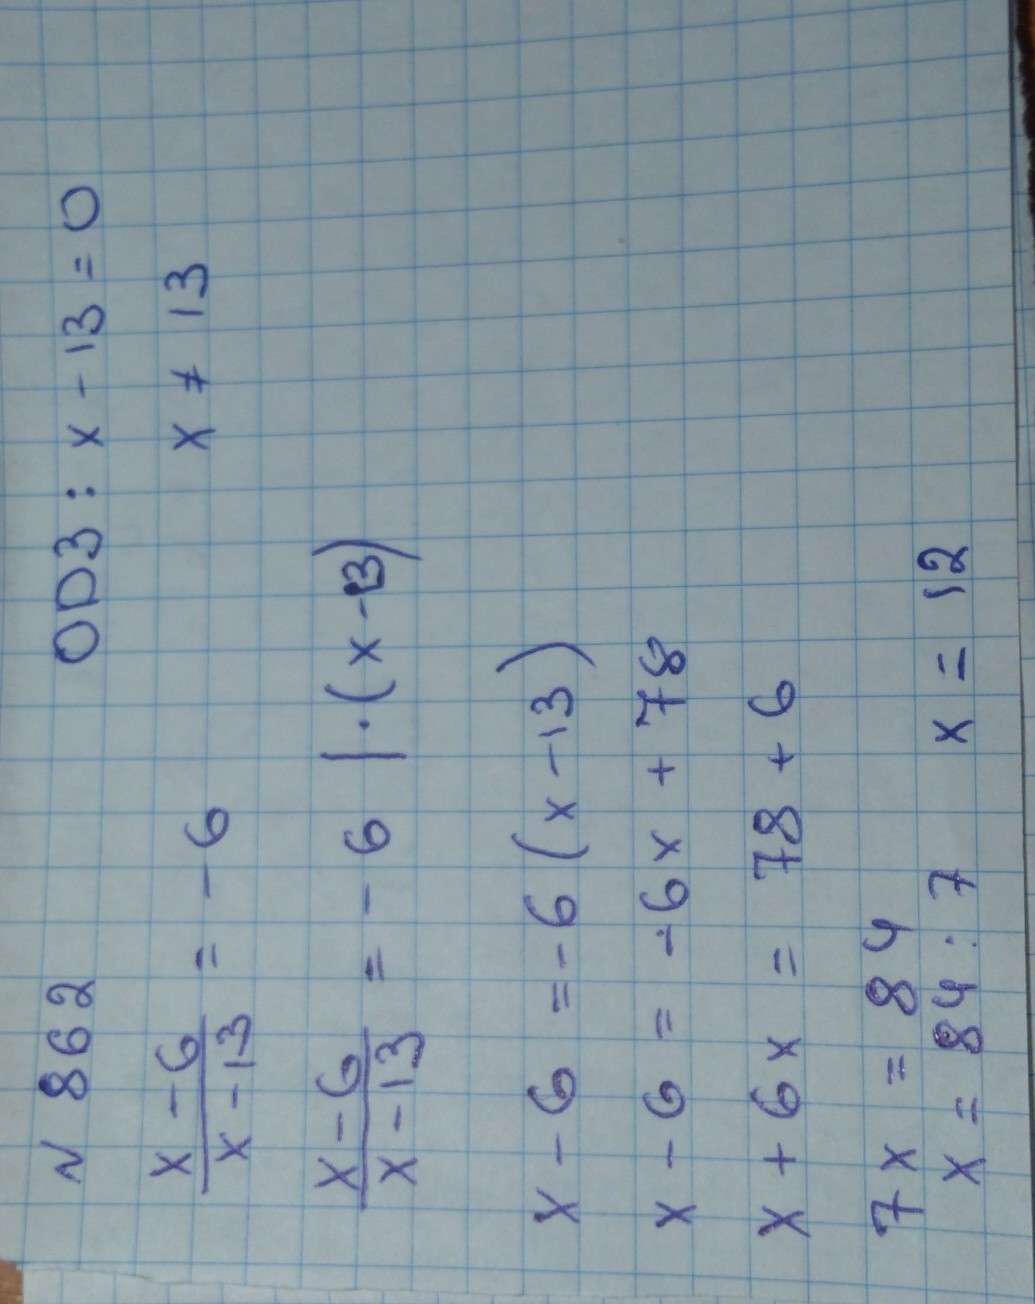 N 862 ОДЗ: x - 13 = 0
x ≠ 13
x - 6 / x - 13 = - 6
x - 6 / x - 13 = - 6 | · (x - 13)
x - 6 = - 6 (x - 13)
x - 6 = - 6x + 78
x + 6x = 78 + 6
7x = 84
x = 84 : 7 x = 12